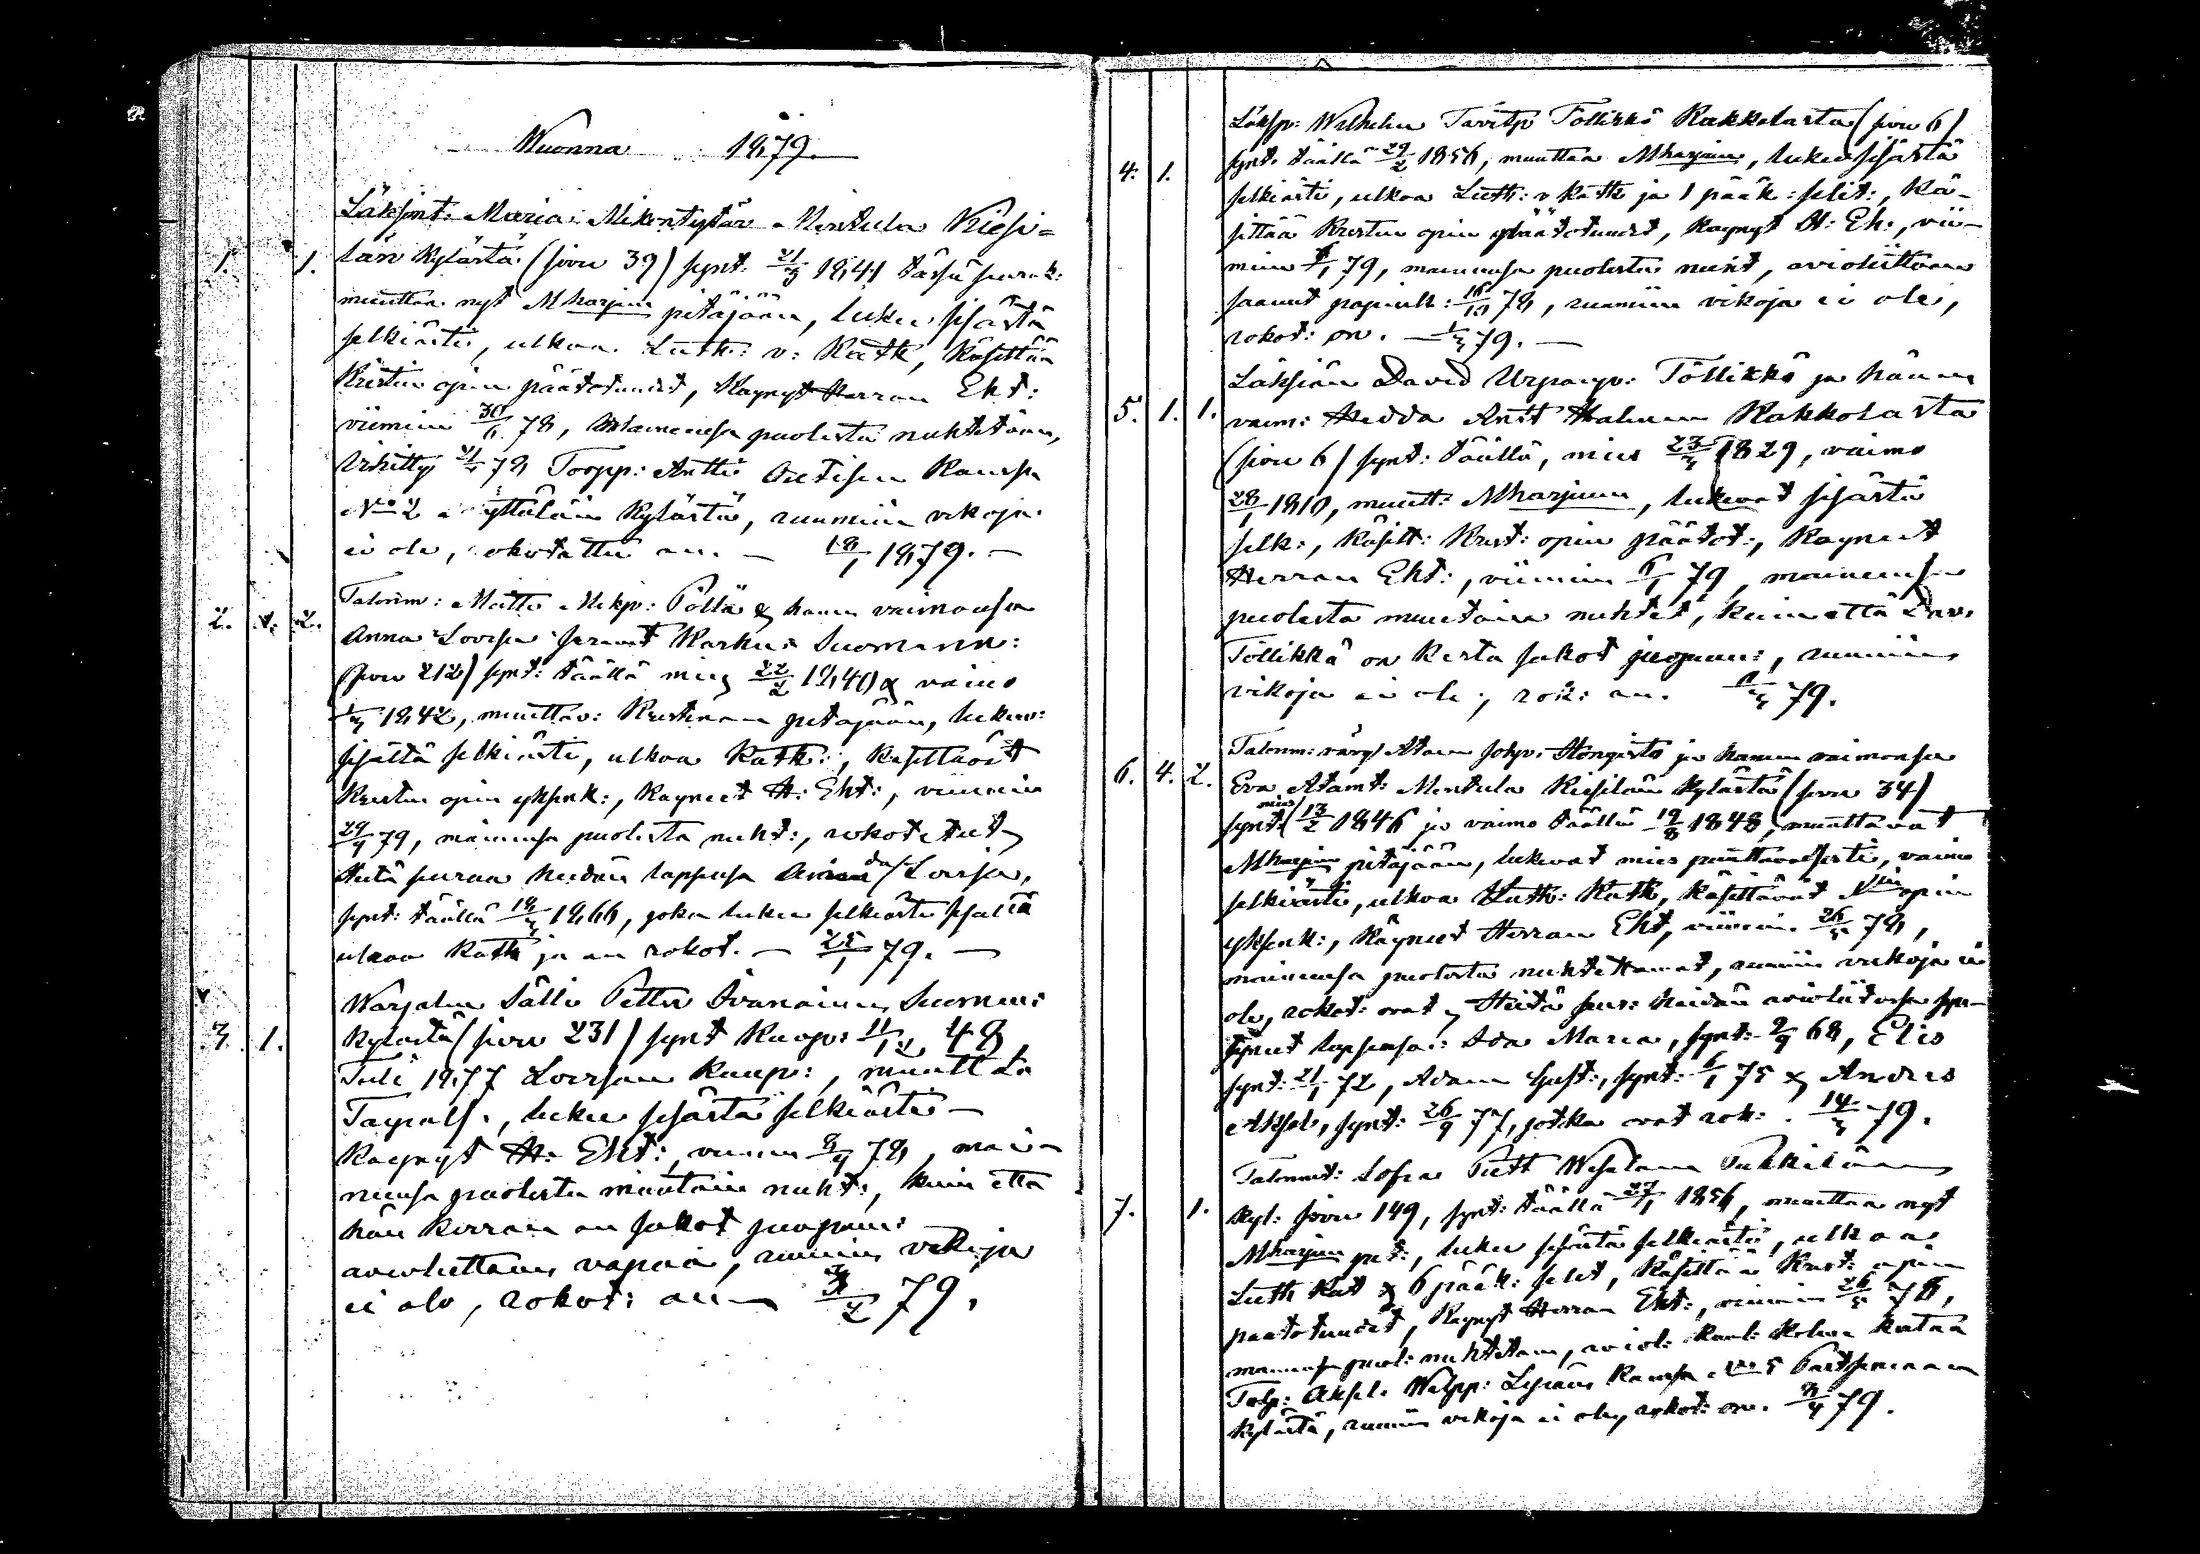 Wuonna 1879.
Läksint: Maria Mikontytär Mentula Kiesi=
1. 1. län kylästä (sivu 39) synt. 21/3 1841 tässä seurak:
muuttaa nyt Mharjun pitäjään, lukee sisästä
selkiästi, ulkoa Luth: v: Katk, käsittää
Kristin opin päätotuudet, Käynyt Herran Eht:
viimein 30/6 78, Maineensa puolesta nuhtetoin,
Vihitty 78 Torpp: Antti Ramsa
No 2 kylästä, ruumiin vikoja
ei ole, rokotettu on. — 18/1 1879. —
2. 1. 2. Talonm: Matti Mikp: Pöllä & hänen vaimonsa
Anna Lovisa Markus Suomenk:
(sivu 212) synt: täällä mies 22/2 1840 & vaimo
1842, muuttav: Ristinan pitäjään, lukev:
sisältä selkiästi, ulkoa Katk:, käsittävät
Kristin opin yksink:, Käyneet H: Eht:, viimein
29/9 79, maineensa puolesta nuht:, rokotetut,
Heitä seuraa heidän lapsensa Lovisa,
synt: täällä 18/3 1866, joka lukee selkiästi sisältä
ulkoa Katk ja on rokot. — 25/1 79. —
Warjalan Sälli Petter Ivanainen Suomen:
3. 1. kylästä (sivu 231) synt Kuop: 11/12 48,
Tuli 1877 Loviisan Kaup:, muutta
Taipals., lukee sisästä selkiästi —
Käynyt H: Eht:, viimein 8/9 78, mai-
neensa puolesta muutoin nuht:, kuin että
hän kerran on sakot juopum:
avioliittoon vapaa, ruumiin vikoja
ei ole, rokot: on — 3/2 79.
Läksp: Wilhelm Tavitp Töllikkö Rakkolasta (sivu 6)
4. 1. synt. täällä 29/2 1856, muuttaa Mharjun, lukee sisästä
selkiästi, ulkoa Luth: v Katk ja 1 pääk: selit:, Kä-
sittää Kristin opin päätotuudet, Käynyt H: Eh:, vii-
mein 79, maineensa puolesta nuht, avioliittoon
saanut 16/10 78, ruumiin vikoja ei ole,
rokot: on. — 1/3 79. —
Läksiän David Töllikkö ja hänen
5. 1. 1. vaim: Hedda Antt Rakkolasta
(sivu 6) synt: täällä, mies 23/3 1829, vaimo
28/1 1810, muutt: Mharjuun, lukevat sisästä
selk:, Käsitt: Krist: opin päätot:, Käyneet
Herran Eht:, viimein 6/1 79, maineensa
puolesta muutoin nuhtet, kuin että Dav.
Töllikkä on kerta sakot juopum:, ruumiin
vikoja ei ole, rok: on. 79.
Talonm: Adam Johp: Hongisto ja hänen vaimonsa
6. 4. 2. Eva Adamt: Mentula Kiesilän kylästä (sivu 34)
synt: mies 13/2 1846 ja vaimo täällä 19/8 1848, muuttavat
Mharjun pitäjään, lukevat mies puuttuvaisesti, vaimo
selkiästi, ulkoa Luth: Katk, käsittävät opin
yksink:, Käyneet Herran Eht, viimein 26/5 78,
maineensa puolesta nuhtettomat, ruumiin vikoja ei
ole, rokot: ovat, Heitä seur: heidän avioliitossa syn-
tyneet lapsensa: Ida Maria, synt: 2/9 68, Elis
synt: 21/1 72, Adam Gust:, synt: 6/1 75 & Anders
Aksel, synt: 26/9 77, jotka ovat rok: . 14/3 79.
Talonnt: Sofia Pett Tukkilan
7. 1. kyl: sivu 149, synt: täällä 27/1 1856, muuttaa nyt
Mharjun pit:, lukee sisästä selkiästi, ulkoa
Luth Kat & 6 pääk: selit, käsittää Krist: opin
päätotuudet, Käynyt Herran Eht:, viimein 26/5 78,
maineensa puol: nuhtetoin, aviol: Kuul: Kolme kertaa
Torp: Aksel Ramsa No 5
kylästä, ruumiin vikoja ei ole, rokot: on. 79.